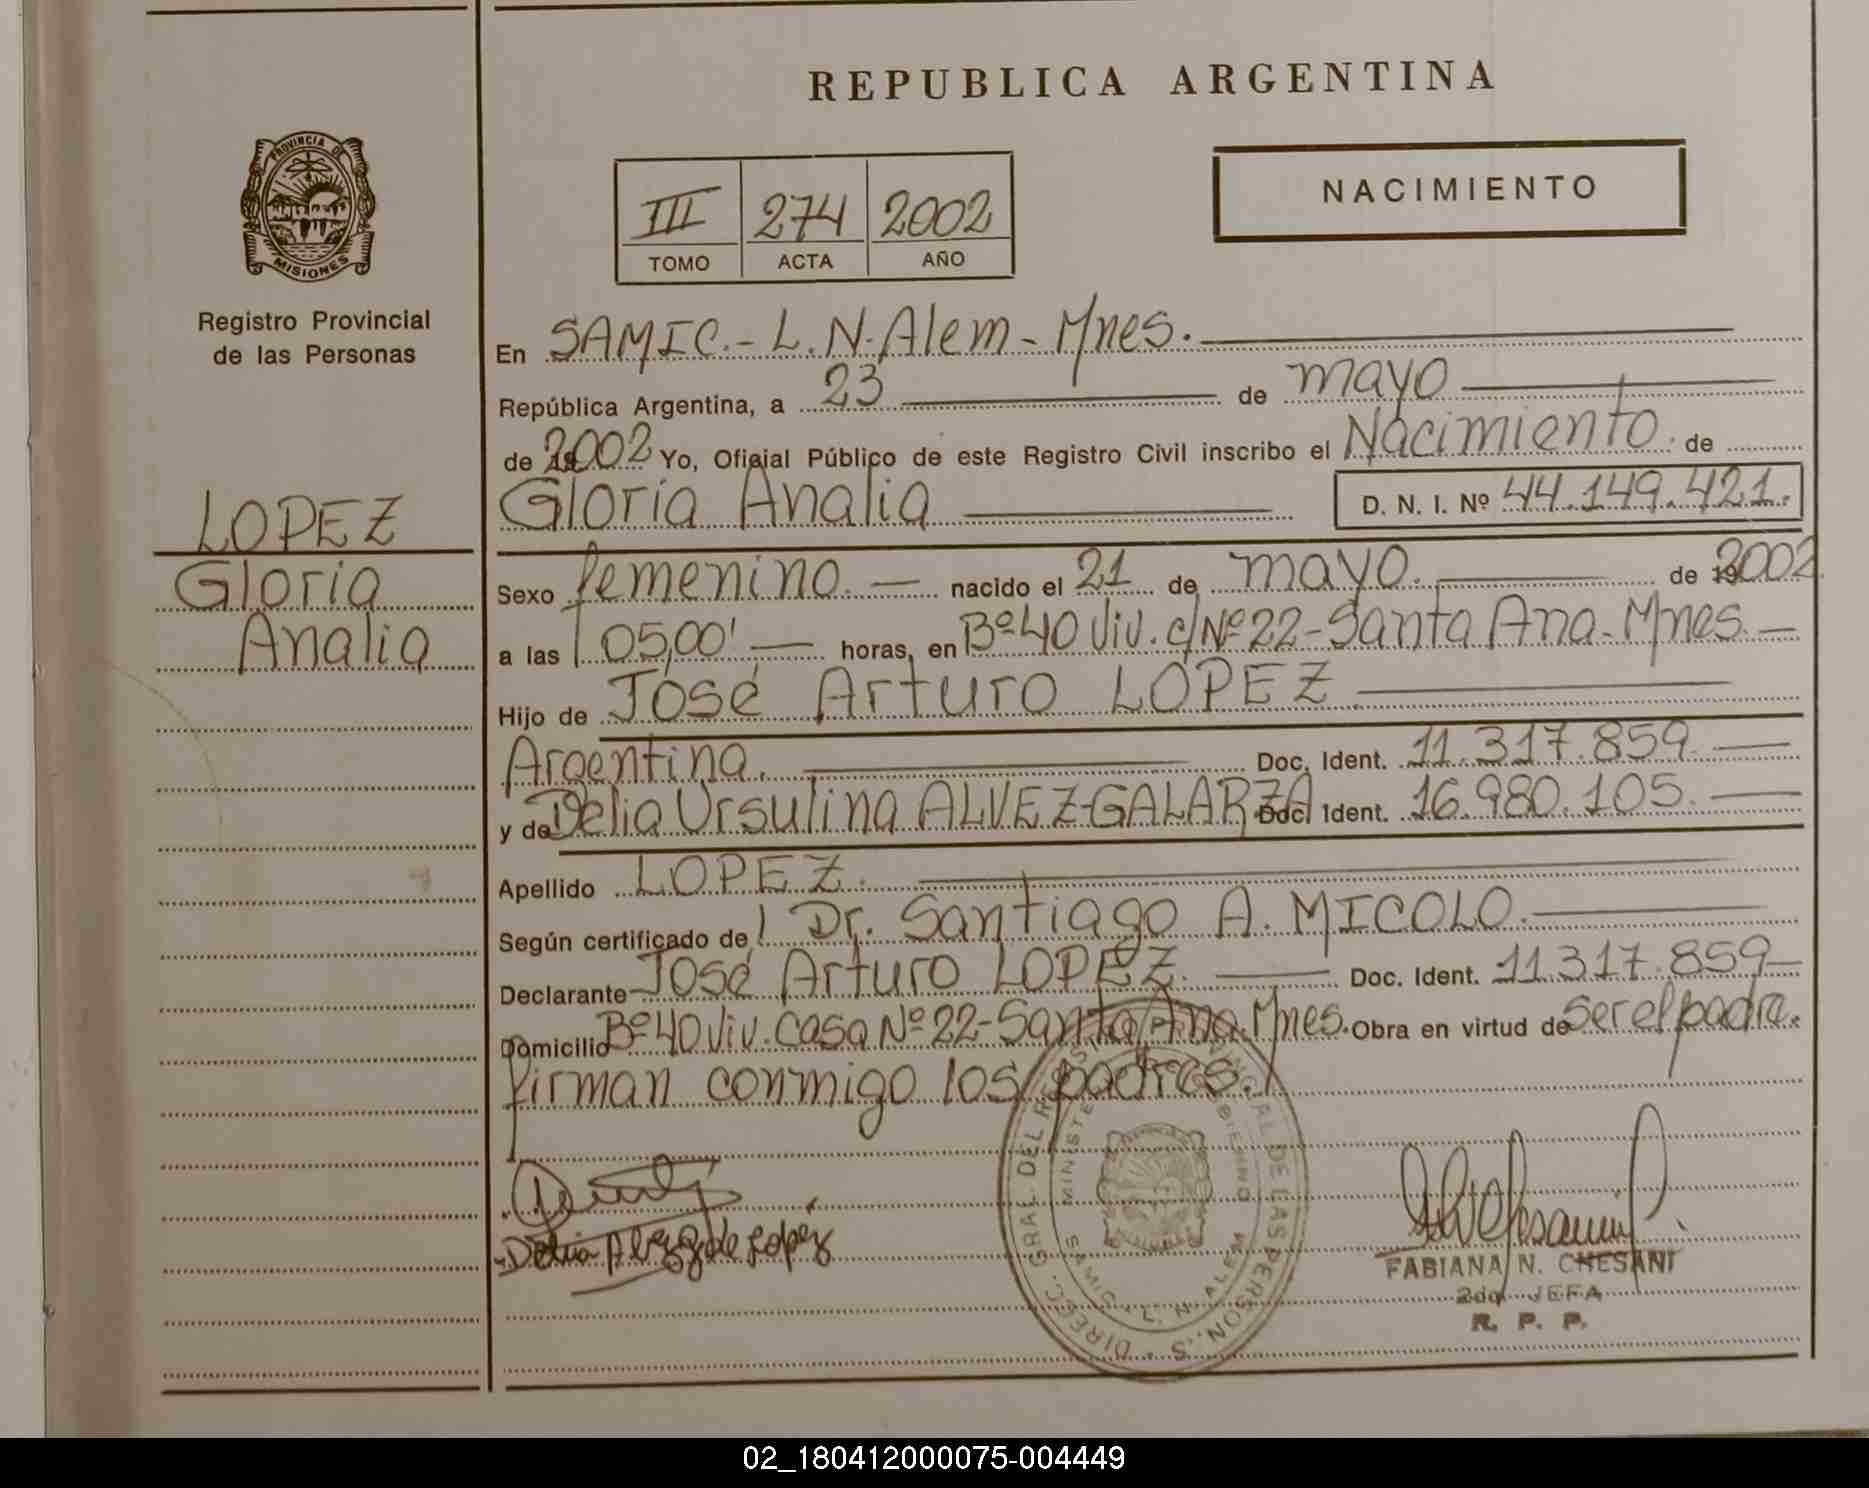 REPUBLICA ARGENTINA
PROVINCIA DE
MISIONES
Registro Provincial
de las Personas
III 274 2002
TOMO ACTA AÑO
NACIMIENTO
LOPEZ
Gloria
Analia
En SAMIC.- L.N.Alem - Mnes.
República Argentina, a 23 de mayo
de 2002 Yo, Oficial Público de este Registro Civil inscribo el Nacimiento de
Gloria Analia D. N. I. Nº 44.149.421.
Sexo femenino. nacido el 21 de mayo. de 2002
a las 05,00' horas, en Bº 40 Viv. c/Nº 22-Santa Ana-Mnes.
Hijo de José Arturo LOPEZ
Argentina. Doc. Ident. 11.317.859
y de Delia Ursulina ALVEZ-GALARZA Doc. Ident. 16.980.105.
Apellido LOPEZ.
Según certificado de Dr. Santiago A. MICOLO.
Declarante José Arturo LOPEZ. Doc. Ident. 11.317.859
Domicilio Bº 40 Viv. Casa Nº 22-Santa Ana. Mnes. Obra en virtud de ser el padre.
firman conmigo los padres.
DIREC. GRAL DEL DE LAS PERSON.S
SAMIC L. N. ALEM
FABIANA N. CHESANI
2da JEFA
R. P. P.
02_180412000075-004449